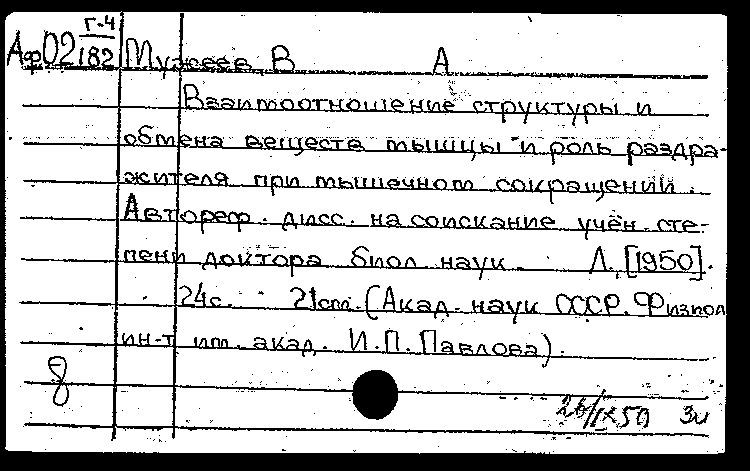 Г-4
Аф02 182 Мужеев В А
Взаимоотношение структуры и
обмена веществ мышцы и роль раздра-
жителя при мышечном сокращении.
Автореф. дисс. на соискание учён. сте-
пени доктора биол наук. Л., [1950].
24с. 21см. (Акад. наук СССР. Физиол
ин-т им. акад. И.П. Павлова).
8
26/IX50 Зи